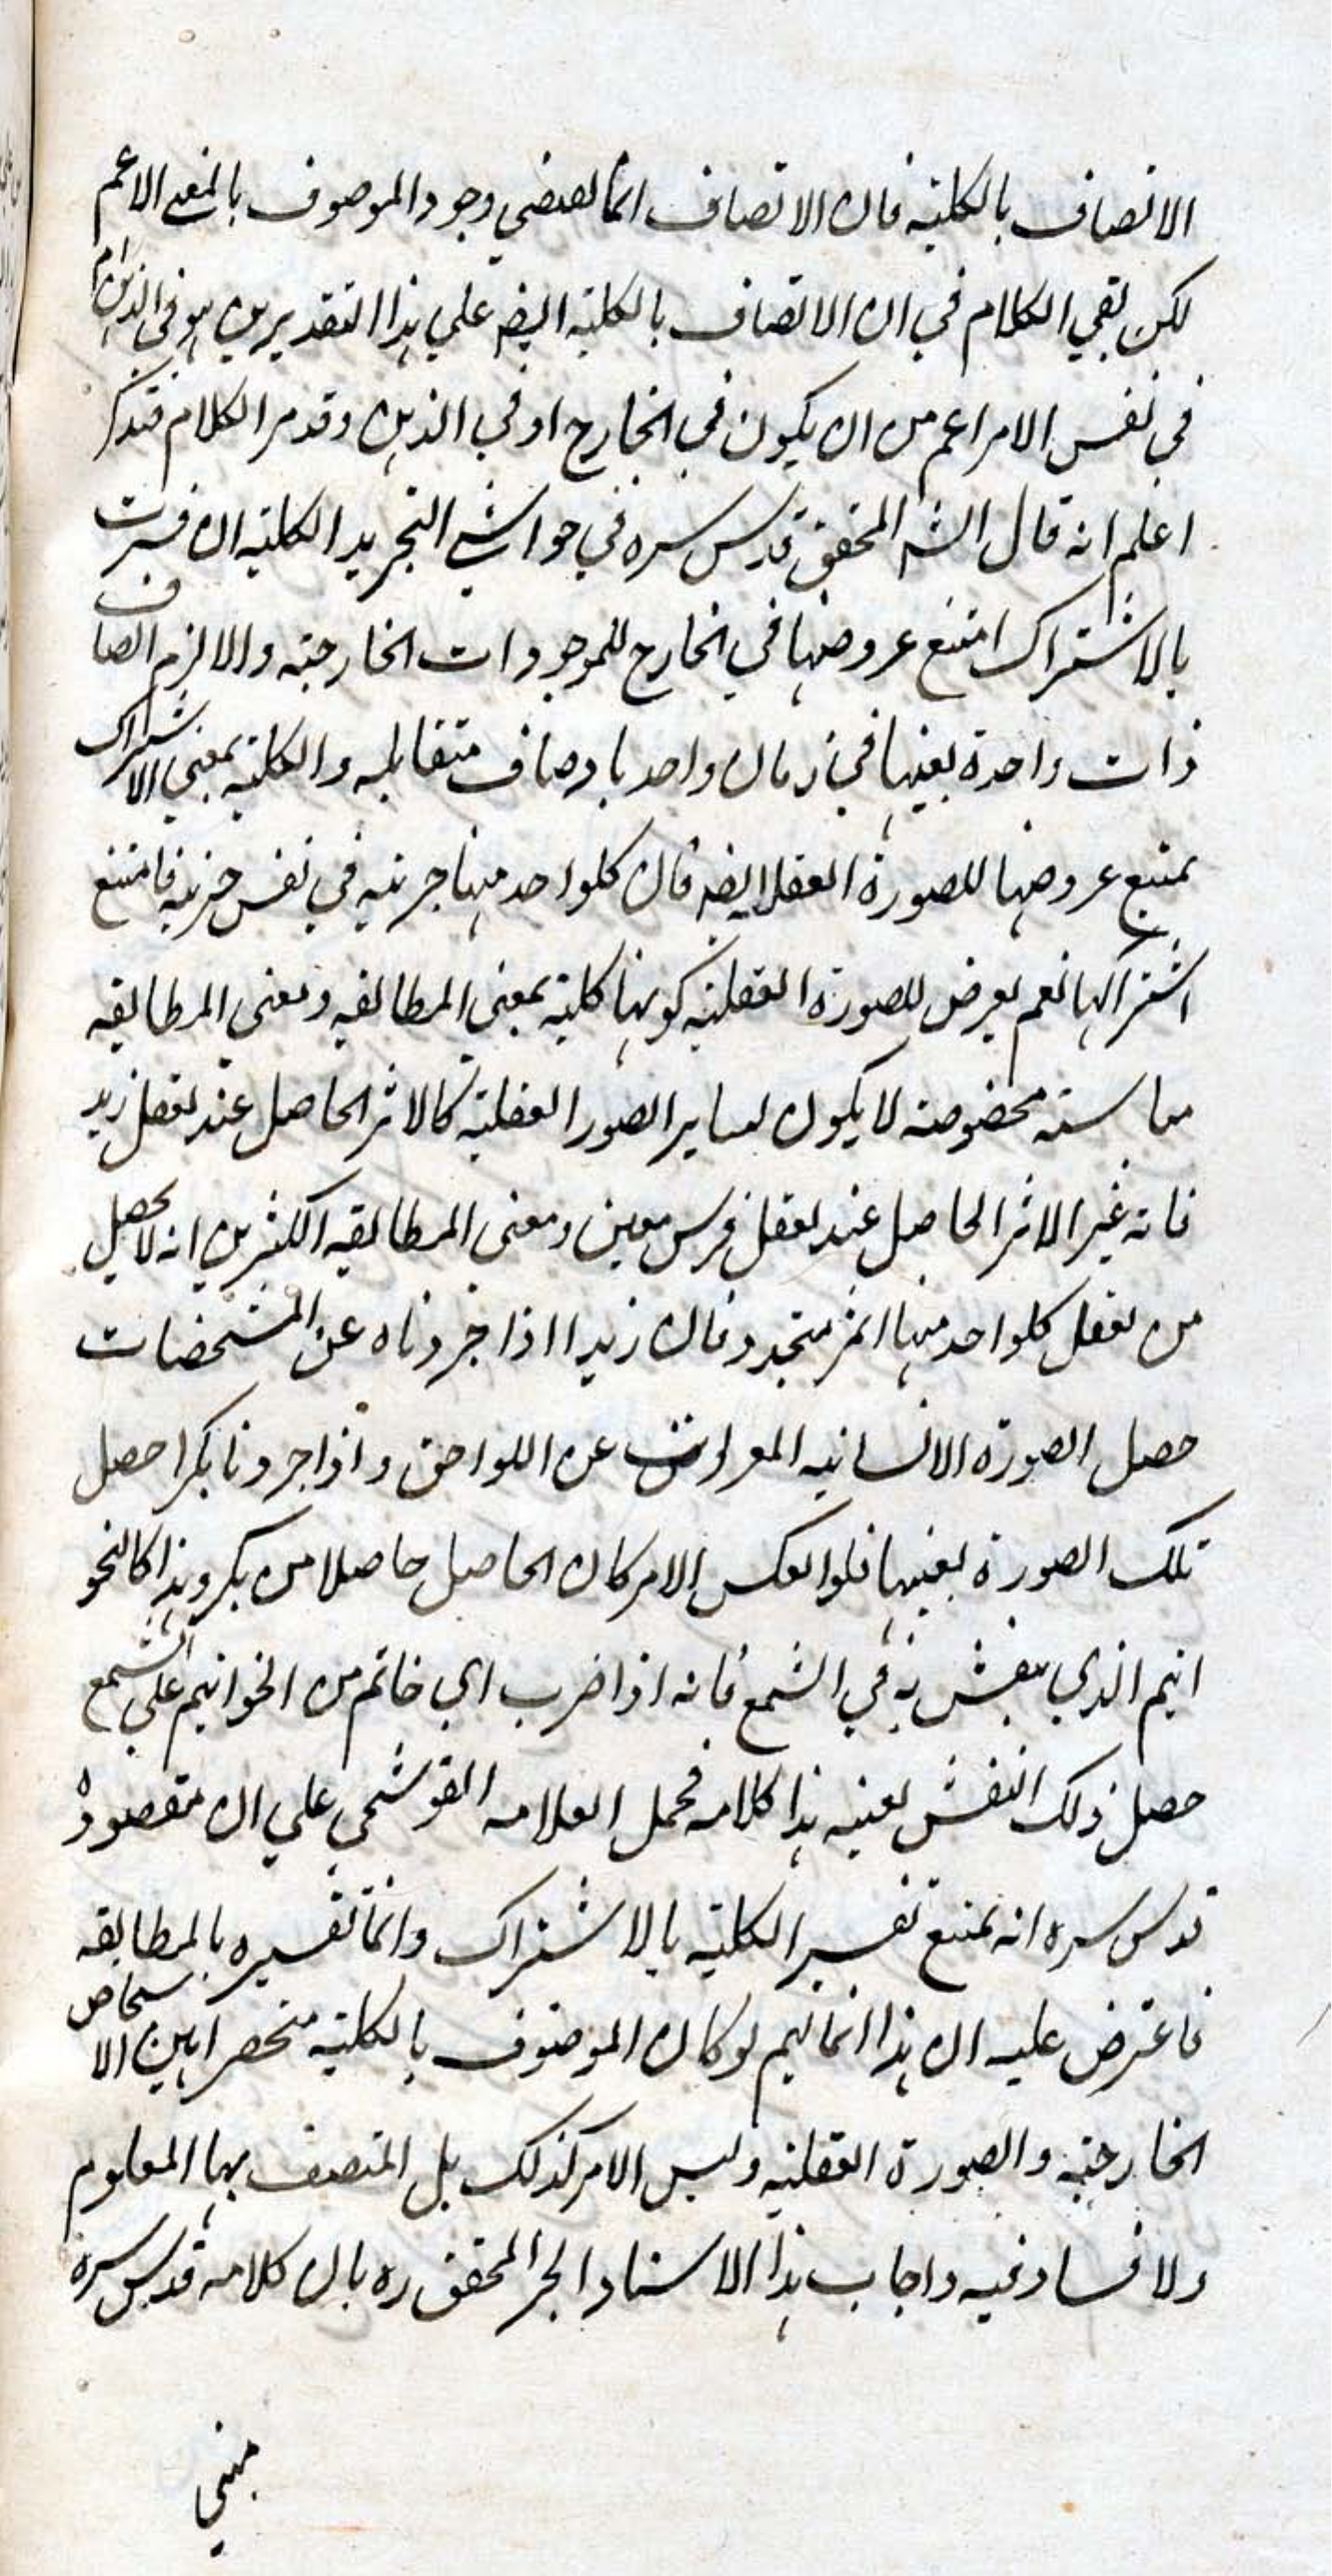 الاتصاف بالكلية فان الاتصاف انما يقتضي وجود الموصوف بالمعنى الاعم
لكن بقي الكلام في ان الاتصاف بالكلية ايضه علي هذا التقديرين هو في الذهن ام
في نفس الامر اعم من ان يكون في الخارج او في الذهن وقد مر الكلام فتذكر
اعلم انه قال الشه المحقق قدس سره في حواشي التجريد الكلية ان فسرت
بالاشتراك امتنع عروضها في الخارج للموجودات الخارجية والا لزم اتصاف
ذات واحدة بعينها في زمان واحد باوصاف متقابله والكلية بمعني الاشتراك
يمتنع عروضها للصورة العقل ايضه فان كلواحد منها جزئيه في نفس جزئيه فامتنع
اشتراكها نعم يعرض للصورة العقلية كونها كلية بمعني المطابقه ومعنى المطابقه
مناسبته مخصوصته لا يكون لساير الصور العقلية كالاثر الحاصل عند تعقل زيد
فانه غير الاثر الحاصل عند تعقل فرس معين ومعنى المطابقه الكثيرين انه لا يحصل
من تعقل كلواحد منها اثر متجدد فان زيدا اذا جردناه عن المشخصات
حصل الصورة الانسانيه المعراة عن اللواحق واذا جردنا بكرا حصل
تلك الصورة بعينها فلو انعكس الامر كان الحاصل حاصلا من بكر وهذا كالنحو
اتيم الذي ينقش به في الشمع فانه اذا ضرب اي خاتم من الخواتيم علي الشمع
حصل ذلك النقش بعينه هذا كلامه فحمل العلامه القوشجي علي ان مقصوده
قدس سره انه يمتنع تفسير الكلية بالاشتراك وانما تفسيره بالمطابقه
فاعترض عليه ان هذا انما يتم لو كان الموصوف بالكلية منحصرا بين الاشخاص
الخارجية والصورة العقلية وليس الامر كذلك بل المتصف بها المعلوم
ولا فساد فيه واجاب هذا الاستاد الحبر المحقق ره بان كلامه قدس سره
مبني